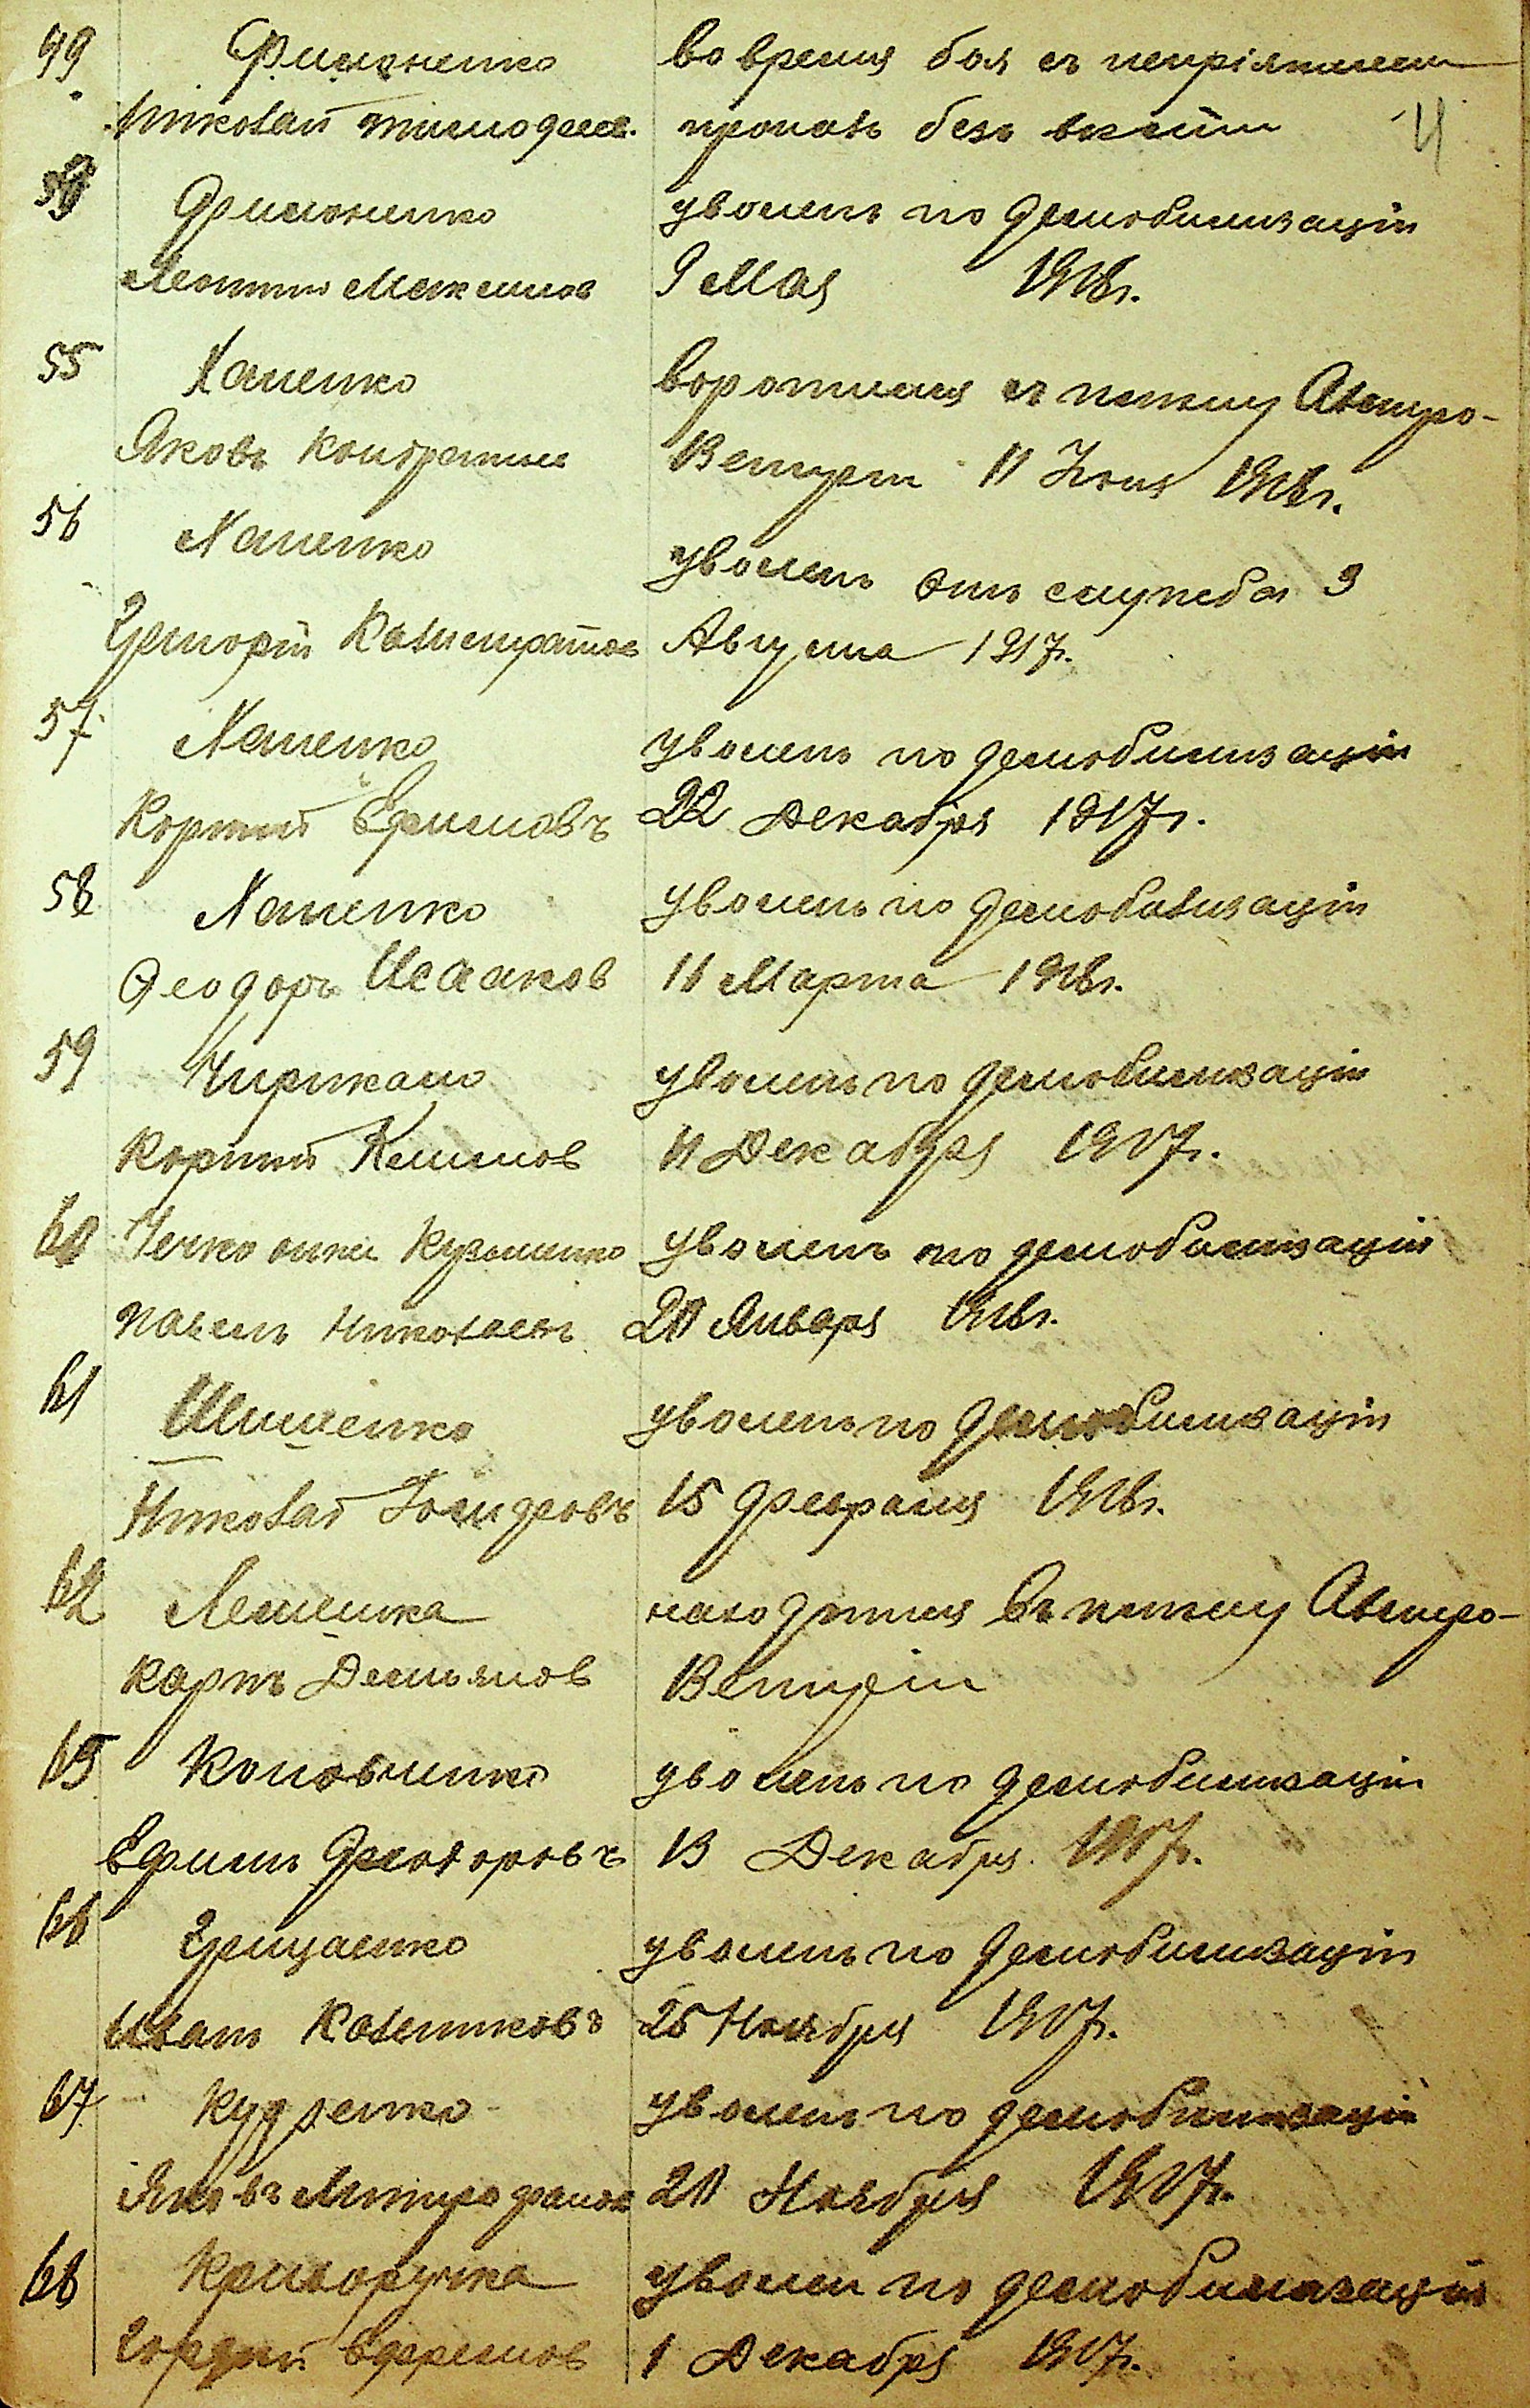 49 Филоненко во время боя съ непріятелем
Николай Тимофеев. пропалъ безъ вѣсти 4
Филоненко уволенъ по демобилизаціи
Леонтий Максимов 9 Мая 1918г.
55 Хаценко воротился съ плѣну Австро-
Яковъ Кондратьев Венгріи 11 Іюня 1918г.
56 Хаценко уволенъ отъ службы 3
Григорій Калистратов Августа 1917г.
57 Хаценко уволенъ по демобилизаціи
Корній Ефимовъ 22 Декабря 1917г.
58 Хаценко уволенъ по демобилизаціи
Феодоръ Исааков 11 Марта 1918г.
59 Чирикало уволенъ по демобилизаціи
Корній Климов 11 Декабря 1917г.
60 Кузьменко уволенъ по демобилизаціи
Павелъ Николаевъ 20 Января 1918г.
61 уволенъ по демобилизаціи
Николай 15 Февраля 1918г.
62 находится въ плѣну Австро-
Карпъ Демьянов Венгріи
65 Коновченко уволенъ по демобилизаціи
Ефимъ Феодоровъ 13 Декабря 1917г.
66 Грицаенко уволенъ по демобилизаціи
Иванъ Калениковъ 25 Ноября 1917г.
67 Кудренко уволенъ по демобилизаціи
Яковъ Митрофанов 20 Ноября 1917г.
68 Криворучка уволен по демобилизаціи
Гордій Ефремов 1 Декабря 1917г.